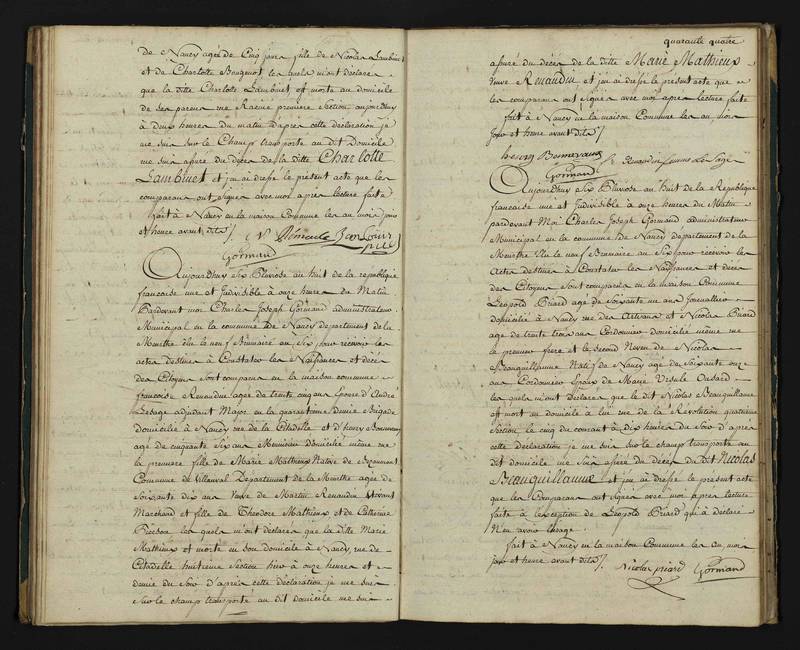 de Nancy agée de Cinq jours fille de Nicolas Lambinet
et de Charlotte Bougenot les quels m'ont declaré
que la ditte Charlotte Lambinet est morte au domicile
de ses parens rue premiere Section aujourdhuy
à Deux heures du matin d'après cette déclaration je
me suis sur le Champ transporté au dit Domicile
me suis assuré du décès de la ditte Charlotte
Lambinet et j'ai dressé le présent acte que les
comparans ont signés avec moi après lecture faite
fait à Nancy en la maison Commune les an mois jour
et heure avant dits /.
Gormand
Aujourdhuy Six Pluviose an huit de la republique
francoise une et Indivisible à onze heures du Matin
Pardevant moi Charles Joseph Gormand administrateur
Municipal en la commune de Nancy département de la
Meurthe élu le neuf Brumaire an Six pour recevoir les
actes destinés à Constater les Naissances et décés
des Citoyens sont comparus en la maison commune
francoise Renaudin agée de trente cinq ans Epouse d'André
Lesage adjudant Major en la quarantieme demie Brigade
Domiciliée à Nancy rue de la Citadelle et d'henry
agé de cinquante Six ans Menuisier Domicilié même rue
la premiere fille de Marie Mathieux Native de
Commune de Departement de la Meurthe agée de
Soixante dix ans Veuve de Martin Renaudin vivant
Marchand et fille de Théodore Mathieux et de Catherine
Pierson les quels m'ont déclarés que la ditte Marie
Mathieux est morte en son domicile à Nancy rue de
Citadelle huitieme Section hier à onze heures et
demie du Soir D'après cette déclaration je me suis
Sur le champ transporté au dit domicile me suis
quarante quatre
assuré du décès de la ditte Marie Mathieux
Veuve Renaudin et j'ai dressé le présent acte que
les comparans ont signés avec moi après lecture faite
fait à Nancy en la maison Commune les an mois
jour et heure avant dits /.
henry
Renaudin femme Le Sage
Gormand
Aujourdhuy Six Pluviose an huit de la Republique
francoise une et Indivisible à onze heures du Matin
pardevant Moi Charles Joseph Gormand administrateur
Municipal en la commune de Nancy département de la
Meurthe Elu le neuf Brumaire an Six pour recevoir les
Actes destinés à Constater les Naissances et décés
des Citoyens Sont comparus en la maison Commune
Léopold Briard agé de Soixante un ans Journallier
domicilié à Nancy rue des Artisans et Nicolas Briard
agé de trente trois ans Cordonnier Domicilié même rue
le premier frere et le second Neveu de Nicolas
Beauquillaume Natif de Nancy agé de Soixante onze
ans Cordonnier Epoux de Marie Ursule
les quels m'ont Déclarés que le dit Nicolas Beauquillaume
est mort au domicile à lui rue de la Révolution quatrieme
Section le cinq du courant à Dix heures du Soir D'après
cette déclaration je me suis sur le champ transporté au
dit domicile me suis assuré du décès du dit Nicolas
Beauquillaume et j'ai dressé le présent acte
que les Comparans ont signés avec moi après lecture
faite à l'exception de Léopold Briard qui a déclaré
N'en avoir l'usage.
fait à Nancy en la maison Commune les an, mois
jour et heure avant dits /. Nicolas priard Gormand